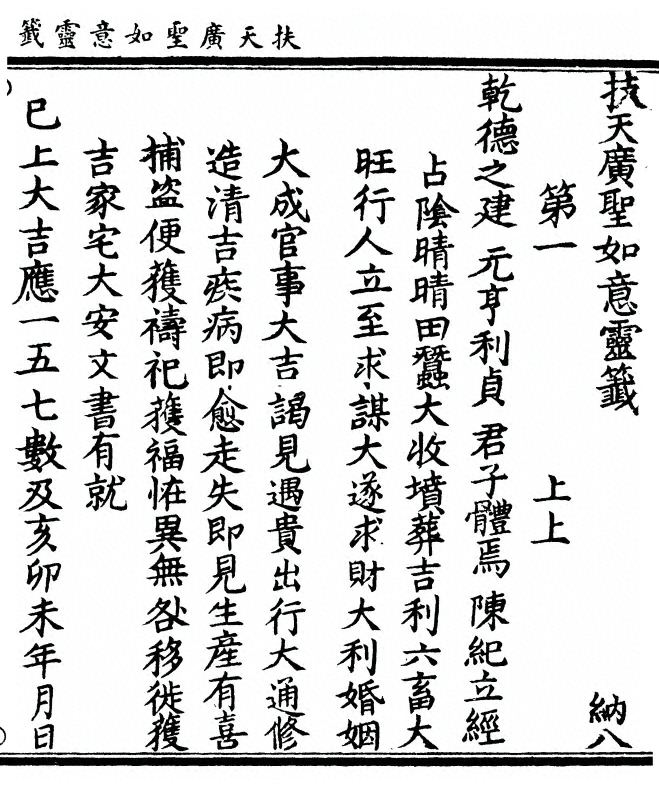 扶天廣聖如意靈籤
扶天廣聖如意靈籤 納八
第一 上上
乾德之建 元亨利貞 君子體焉 陳紀立經
占陰晴晴田蠶大收墳葬吉利六畜大
旺行人立至求謀大遂求財大利婚姻
大成官事大吉謁見遇貴出行大通修
造清吉疾病即愈走失即見生產有喜
捕盜便獲禱祀獲福恠異無咎移徙獲
吉家宅大安文書有就
巳上大吉應一五七數及亥卯未年月日